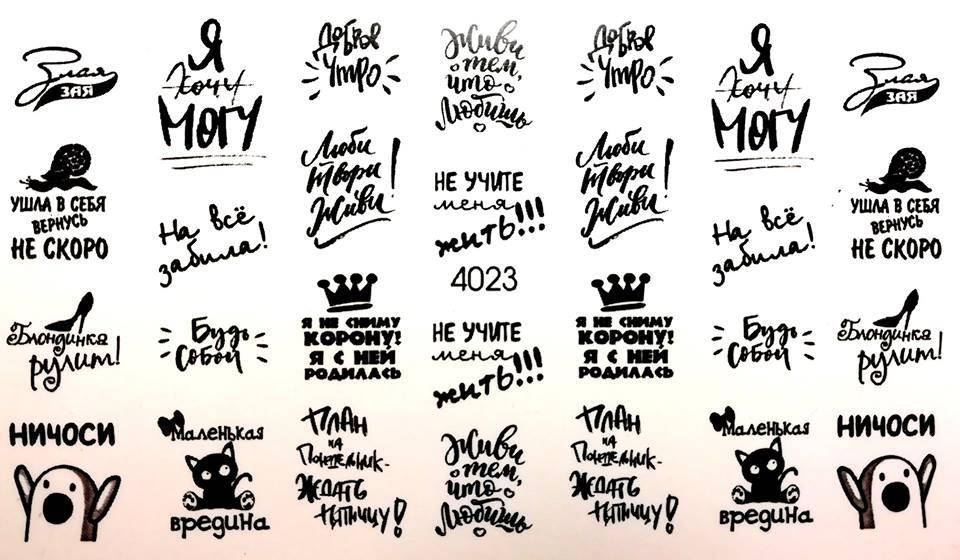 Злая
ЗАЯ
УШЛА В СЕБЯ
ВЕРНУСЬ
НЕ СКОРО
Блондинка
рулит!
НИЧОСИ
Я
ХОЧУ
МОГУ
На всё
забила!
Будь
собой
Маленькая
вредина
Доброе
Утро
Люби
Твори
Живи!
Я НЕ СНИМУ
КОРОНУ!
Я С НЕЙ
РОДИЛАСЬ
ПЛАН
на
Понедельник-
ЖДАТЬ
пятницу!
Живи
тем,
что
Любишь
НЕ УЧИТЕ
меня
жить!!!
4023
НЕ УЧИТЕ
меня
жить!!!
Живи
тем,
что
Любишь
Доброе
Утро
Люби
Твори
Живи!
Я НЕ СНИМУ
КОРОНУ!
Я С НЕЙ
РОДИЛАСЬ
ПЛАН
на
Понедельник-
ЖДАТЬ
пятницу!
Я
ХОЧУ
МОГУ
На всё
забила!
Будь
собой
Маленькая
вредина
Злая
ЗАЯ
УШЛА В СЕБЯ
ВЕРНУСЬ
НЕ СКОРО
Блондинка
рулит!
НИЧОСИ